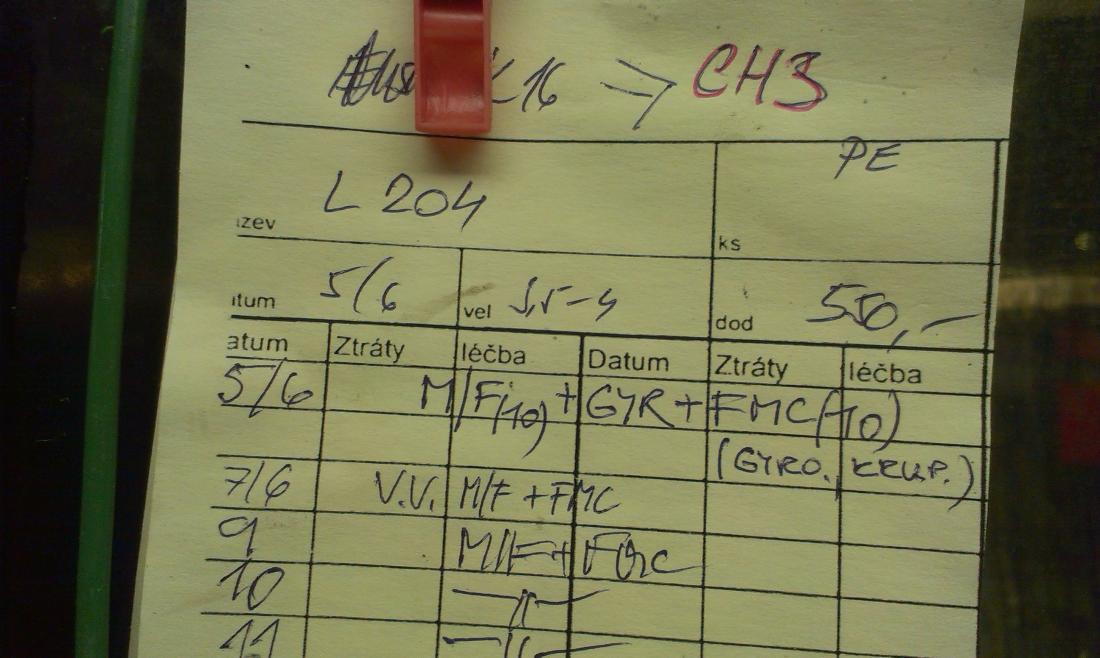 L16 => CH3
PE
L 204
ízev ks
5/6 3,5-4 550,-
atum vel dod
atum Ztráty léčba Datum Ztráty léčba
5/6 M/F(10) + GYR + FMC(10)
(GYRO. KRUP.)
7/6 V.V. M/F + FMC
9 M/F + FMC
10 —//—
11 —//—